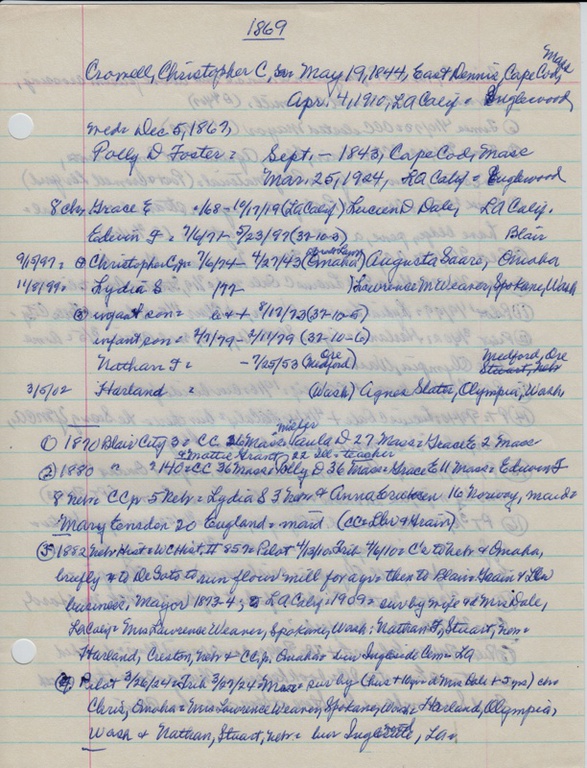 1869
Crowell, Christopher C, Sr = May 19, 1844, East Dennis, Cape Cod, Mass
Apr. 4, 1910, LA Calif = Inglewood
med = Dec 5, 1867,
Polly D Foster = Sept. - 1843, Cape Cod, Mass
Mar. 25, 1924, LA Calif = Inglewood
8 ch = Grace E = /68 - 10/17/19 (LA Calif) Lucien D Dale, LA Calif.
Edwin F = 7/6/71 - 5/23/97 (32-10-3) Blair
9/15/97 = Christopher C, Jr = 7/6/74 - 4/27/43 (Omaha) Augusta , Omaha
11/8/99 = Lydia S = /77 - ) Lawrence M Weaver, Spokane, Wash
infant son = 8/17/73 (32-10-5)
infant son = 2/7/79 - 2/17/79 (32-10-6)
Nathan F = - 7/25/53 (Medford Ore) Medford, Ore
Stuart, Nebr
3/5/02 Harland = (Wash) Agnes Slater, Olympia, Wash
① 1870 Blair City 3 = CC 26 Mass D 27 Mass = Grace E 2 Mass
& Mattie Grant, 22 Ill = teacher
② 1880 " 2140 = CC 36 Mass = Polly D 36 Mass = Grace E 11 Mass = Edwin F
8 Nebr = CC Jr 5 Nebr = Lydia S 3 Nebr & Anna 16 Norway, maid =
Mary 20 England = maid (CC = Lbr & Grain)
③ 1882 Nebr Hist = WC Hist II 85 = Pilot 4/13/10 = Trib 4/6/10 = C to Nebr & Omaha,
briefly & to DeSoto to run flour mill for yr = then to Blair = Grain & Lbr
business, Mayor 1873-4, to LA Calif = 1909 = sur by wife & Mrs Dale,
LA Calif = Mrs Lawrence Weaver, Spokane, Wash; Nathan F, Stuart, Nebr =
Harland, Creston, Nebr & CC Jr, Omaha = bur Inglewood Cem = LA
④ Pilot 3/26/24 = Trib 3/27/24 = Mass = sur by ( & Mrs Dale ) ch =
Chris, Omaha = Mrs Lawrence Weaver, Spokane, Wash = Harland, Olympia,
Wash & Nathan, Stuart, Nebr = bur , LA =